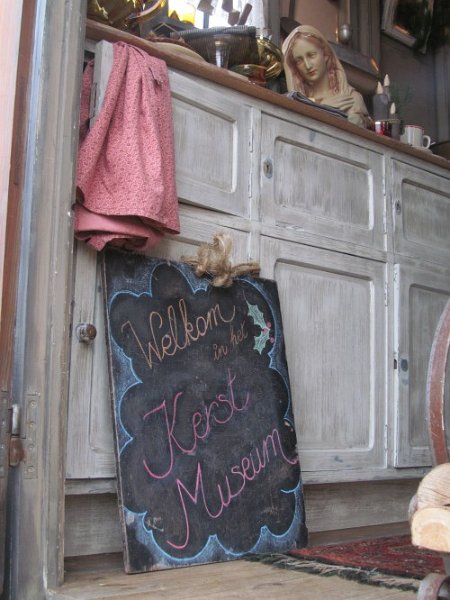 Welkom
in het
Kerst
Museum